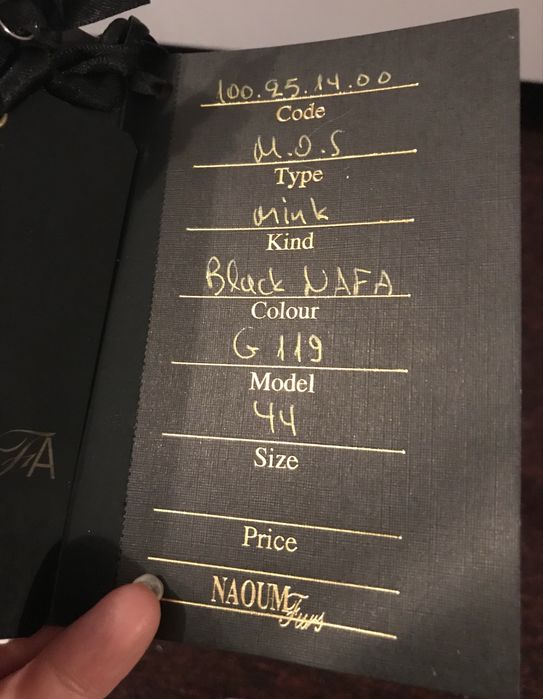 100.95.14.00
Code
M.O.S
Type
mink
Kind
Black NAFA
Colour
G 119
Model
44
Size
Price
NAOUM Furs